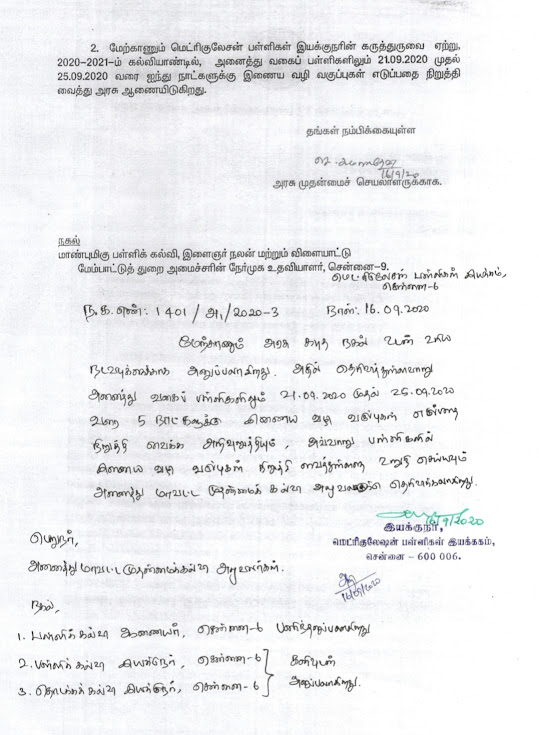 2. மேற்காணும் மெட்ரிகுலேசன் பள்ளிகள் இயக்குநரின் கருத்துருவை ஏற்று,
2020-2021-ம் கல்வியாண்டில், அனைத்து வகைப் பள்ளிகளிலும் 21.09.2020 முதல்
25.09.2020 வரை ஐந்து நாட்களுக்கு இணைய வழி வகுப்புகள் எடுப்பதை நிறுத்தி
வைத்து அரசு ஆணையிடுகிறது.
தங்கள் நம்பிக்கையுள்ள
16/9/20
அரசு முதன்மைச் செயலாளருக்காக.
நகல்
மாண்புமிகு பள்ளிக் கல்வி, இளைஞர் நலன் மற்றும் விளையாட்டு
மேம்பாட்டுத் துறை அமைச்சரின் நேர்முக உதவியாளர், சென்னை-9.
மெட்ரிகுலேசன் பள்ளிகள் இயக்ககம்,
சென்னை-6
ந.க.எண்: 1401/அ1/2020-3 நாள்: 16.09.2020
மேற்காணும் அரசு கடித நகல் உடன் உரிய
நடவடிக்கைக்காக அனுப்பலாகிறது. அதில் தெரிவித்துள்ளவாறு
அனைத்து வகைப் பள்ளிகளிலும் 21.09.2020 முதல் 25.09.2020
வரை 5 நாட்களுக்கு இணைய வழி வகுப்புகள் எடுப்பதை
நிறுத்தி வைக்க அறிவுறுத்தியும், அவ்வாறு பள்ளிகளில்
இணைய வழி வகுப்புகள் நிறுத்தி வைத்துள்ளதை உறுதி செய்யவும்
அனைத்து மாவட்ட முதன்மைக் கல்வி அலுவலருக்கு தெரிவிக்கலாகிறது.
16/9/2020
இயக்குநர்,
மெட்ரிகுலேஷன் பள்ளிகள் இயக்ககம்,
சென்னை - 600 006.
பெறுநர்,
அனைத்து மாவட்ட முதன்மைக்கல்வி அலுவலர்கள்.
நகல்,
1. பள்ளிக் கல்வி ஆணையர், சென்னை-6 பணிந்தனுப்பலாகிறது
2. பள்ளிக் கல்வி இயக்குநர், சென்னை-6 கனிவுடன்
3. தொடக்கக் கல்வி இயக்குநர், சென்னை-6 அனுப்பலாகிறது.